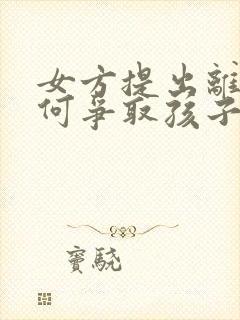 女方提出離
何爭取孩子
竇驍